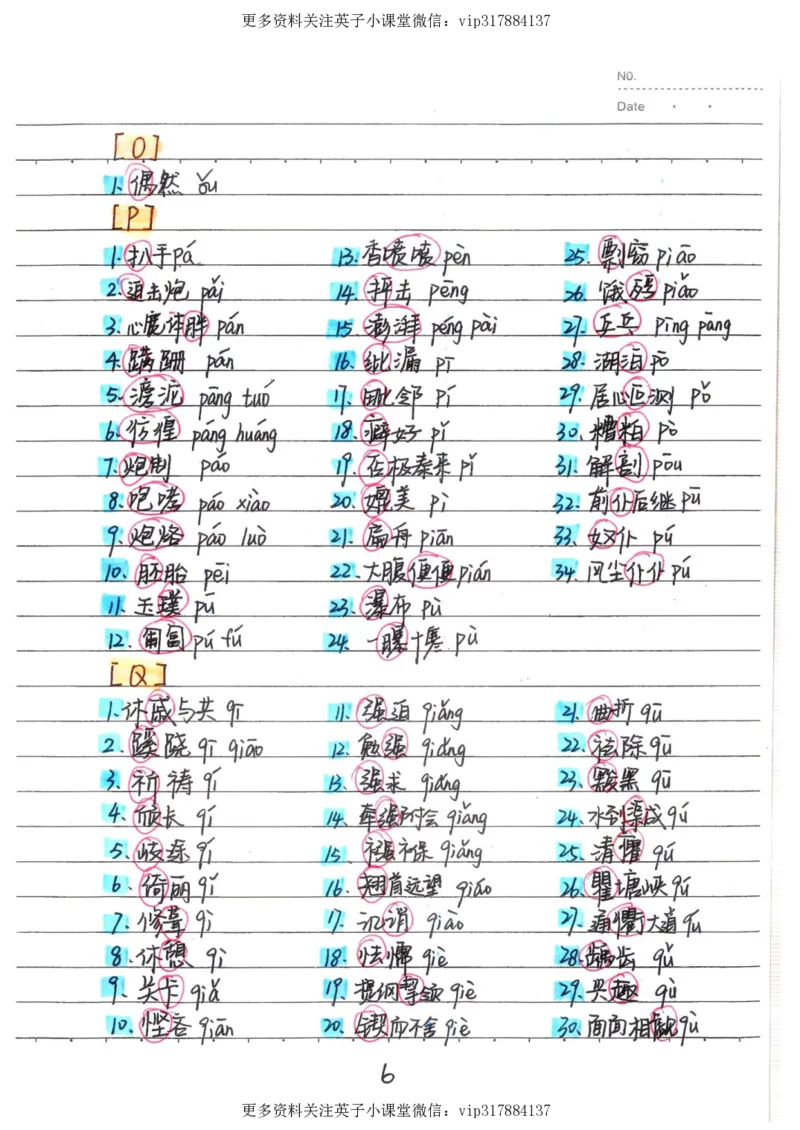 更多资料关注英子小课堂微信：vip317884137
NO.
Date
[O]
1. 偶然 ǒu
[P]
1. 扒手 pá
2. 迫击炮 pǎi
3. 心宽体胖 pán
4. 蹒跚 pán
5. 滂沱 pāng tuó
6. 彷徨 páng huáng
7. 炮制 páo
8. 咆哮 páo xiào
9. 炮烙 páo luò
10. 胚胎 pēi
11. 玉璞 pú
12. 匍匐 pú fú
13. 香喷喷 pèn
14. 抨击 pēng
15. 澎湃 péng pài
16. 纰漏 pī
17. 毗邻 pí
18. 癖好 pǐ
19. 否极泰来 pǐ
20. 媲美 pì
21. 扁舟 piān
22. 大腹便便 pián
23. 瀑布 pù
24. 一曝十寒 pù
25. 剽窃 piāo
26. 饿殍 piǎo
27. 乒乓 pīng pāng
28. 湖泊 pō
29. 居心叵测 pǒ
30. 糟粕 pò
31. 解剖 pōu
32. 前仆后继 pū
33. 奴仆 pú
34. 风尘仆仆 pú
[Q]
1. 休戚与共 qī
2. 蹊跷 qī qiāo
3. 祈祷 qí
4. 颀长 qí
5. 歧途 qí
6. 绮丽 qǐ
7. 修葺 qì
8. 休憩 qì
9. 关卡 qiǎ
10. 悭吝 qiān
11. 强迫 qiǎng
12. 勉强 qiǎng
13. 强求 qiǎng
14. 牵强附会 qiǎng
15. 襁褓 qiǎng
16. 翘首远望 qiáo
17. 讥诮 qiào
18. 怯懦 qiè
19. 提纲挈领 qiè
20. 锲而不舍 qiè
21. 曲折 qū
22. 祛除 qū
23. 黢黑 qū
24. 水到渠成 qú
25. 清癯 qú
26. 瞿塘峡 qú
27. 通衢大道 qú
28. 龋齿 qǔ
29. 兴趣 qù
30. 面面相觑 qù
6
更多资料关注英子小课堂微信：vip317884137